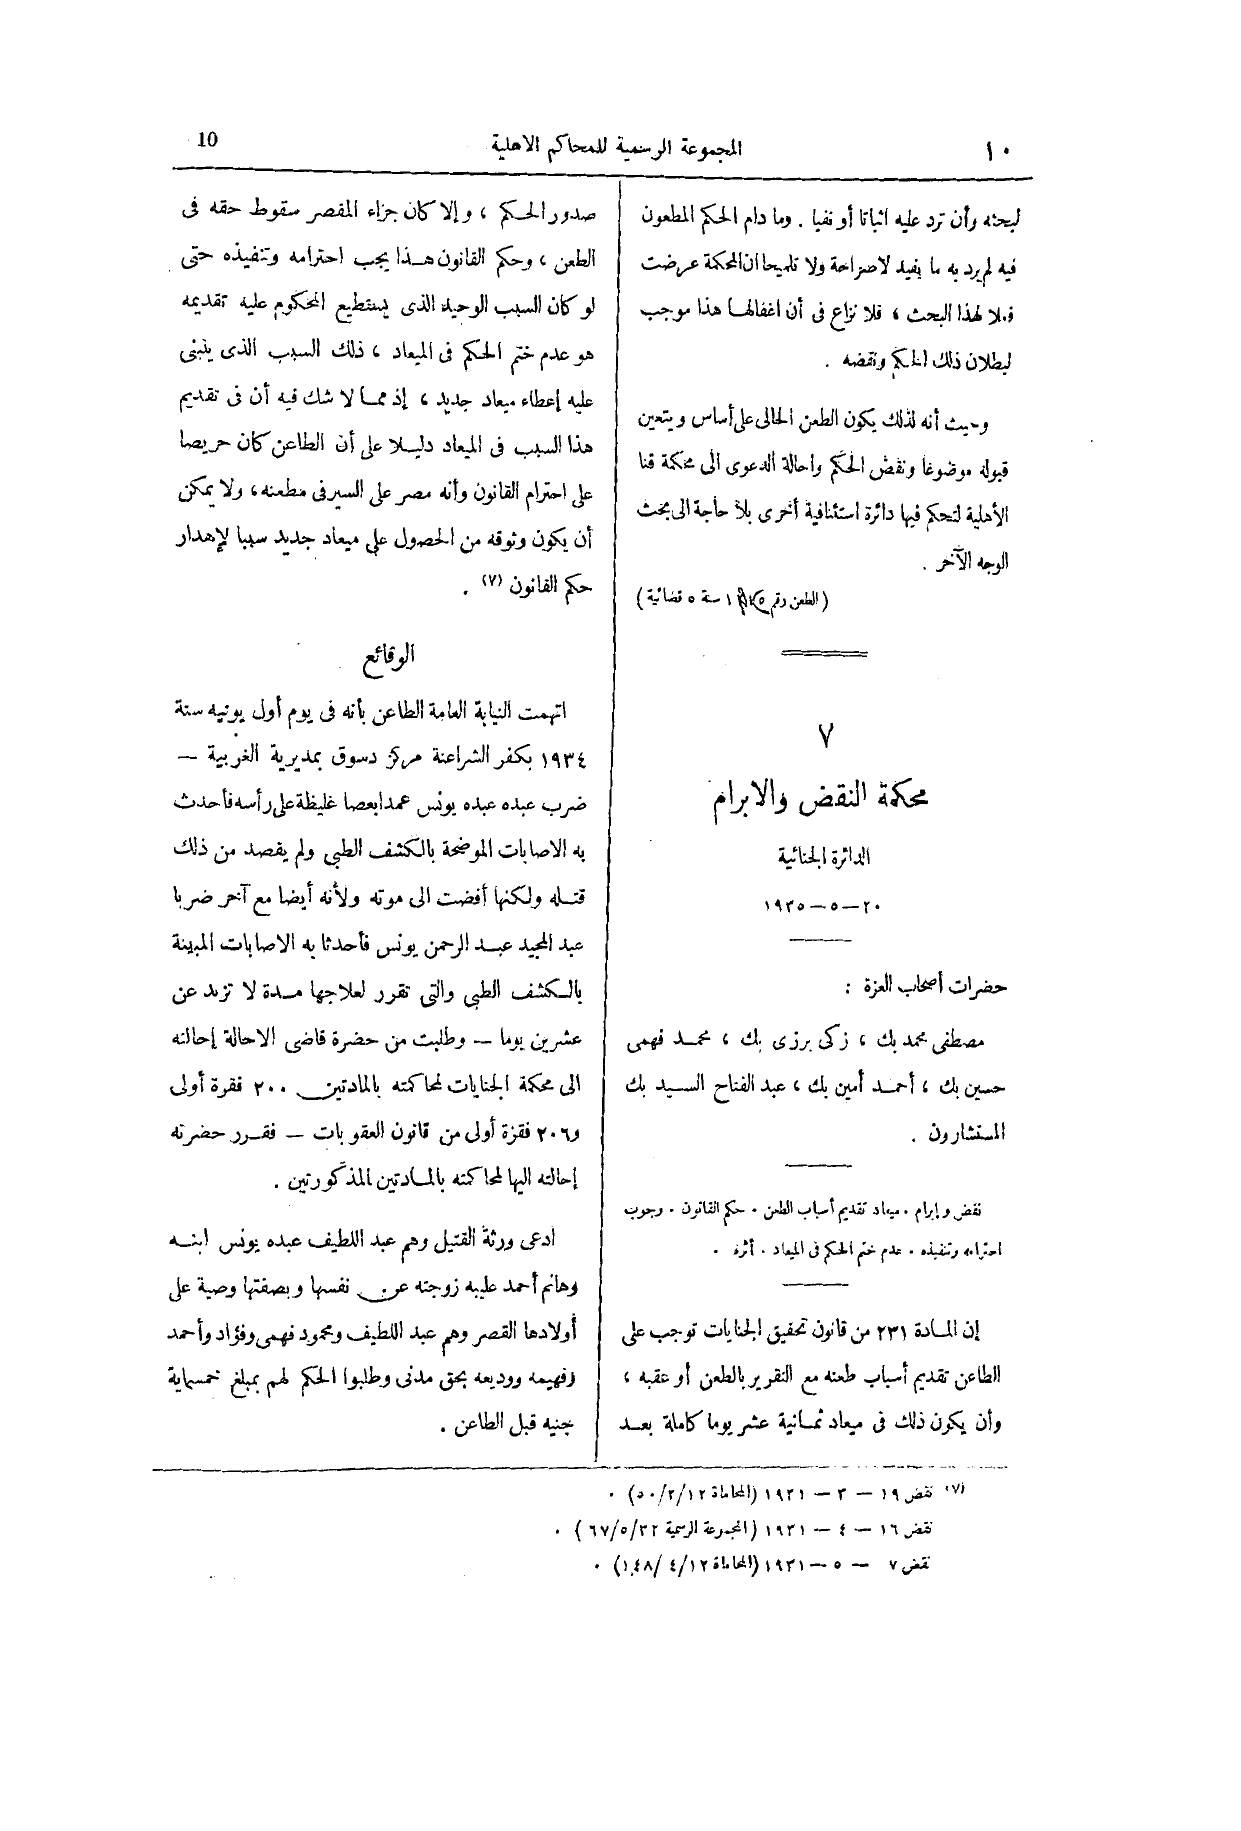 ١٠
المجموعة الرسمية للمحاكم الاهلية
10
لبحثه وأن ترد عليه اثباتا أو نفيا . وما دام الحكم المطعون
فيه لم يرد به ما يفيد لا صراحة ولا تلميحا ان المحكمة عرضت
فعلا لهذا البحث ، فلا نزاع فى أن اغفالها هذا موجب
لبطلان ذلك الحكم ونقضه .
وحيث أنه لذلك يكون الطعن الحالى على أساس ويتعين
قبوله موضوعا ونقض الحكم واحالة الدعوى الى محكمة قنا
الأهلية لتحكم فيها دائرة استئنافية أخرى بلا حاجة الى بحث
الوجه الآخر .
(الطعن رقم سنة ٥ قضائية)
٧
محكمة النقض والابرام
الدائرة الجنائية
٢٠ — ٥ — ١٩٣٥
حضرات أصحاب العزة :
مصطفى محمد بك ، زكى برزى بك ، محمد فهمى
حسين بك ، أحمد أمين بك ، عبد الفتاح السيد بك
المستشارون .
نقض وإبرام . ميعاد تقديم أسباب الطعن . حكم القانون . وجوب
احترامه وتنفيذه . عدم ختم الحكم فى الميعاد . أثره .
إن المادة ٢٣١ من قانون تحقيق الجنايات توجب على
الطاعن تقديم أسباب طعنه مع التقرير بالطعن أو عقبه ،
وأن يكون ذلك فى ميعاد ثمانية عشر يوما كاملة بعد
صدور الحكم ، وإلا كان جزاء المقصر سقوط حقه فى
الطعن ، وحكم القانون هذا يجب احترامه وتنفيذه حتى
لو كان السبب الوحيد الذى يستطيع المحكوم عليه تقديمه
هو عدم ختم الحكم فى الميعاد ، ذلك السبب الذى ينبنى
عليه إعطاء ميعاد جديد ، إذ مما لا شك فيه أن فى تقديم
هذا السبب فى الميعاد دليلا على أن الطاعن كان حريصا
على احترام القانون وأنه مصر على السير فى مطعنه ، ولا يمكن
أن يكون وثوقه من الحصول على ميعاد جديد سببا لإهدار
حكم القانون (٧) .
الوقائع
اتهمت النيابة العامة الطاعن بأنه فى يوم أول يونيه سنة
١٩٣٤ بكفر الشراعنة مركز دسوق بمديرية الغربية —
ضرب عبده عبده يونس عمدا بعصا غليظة على رأسه فأحدث
به الاصابات الموضحة بالكشف الطبى ولم يقصد من ذلك
قتله ولكنها أفضت الى موته ولأنه أيضا مع آخر ضربا
عبد المجيد عبد الرحمن يونس فأحدثا به الاصابات المبينة
بالكشف الطبى والتى تقرر لعلاجها مدة لا تزيد عن
عشرين يوما — وطلبت من حضرة قاضى الاحالة إحالته
الى محكمة الجنايات لمحاكمته بالمادتين ٢٠٠ فقرة أولى
و٢٠٦ فقرة أولى من قانون العقوبات — فقرر حضرته
إحالته اليها لمحاكمته بالمادتين المذكورتين .
ادعى ورثة القتيل وهم عبد اللطيف عبده يونس ابنه
وهانم أحمد عليبه زوجته عن نفسها وبصفتها وصية على
أولادها القصر وهم عبد اللطيف ومحمود فهمى وفؤاد وأحمد
وفهيمه ووديعه بحق مدنى وطلبوا الحكم لهم بمبلغ خمسماية
جنيه قبل الطاعن .
(٧) نقض ١٩ — ٣ — ١٩٣١ (المحاماة ١٢/٢/٥٠) .
نقض ١٦ — ٤ — ١٩٣١ (المجموعة الرسمية ٣٢/٥/٦٧) .
نقض ٧ — ٥ — ١٩٣١ (المحاماة ١٢/٤/١٤٨) .